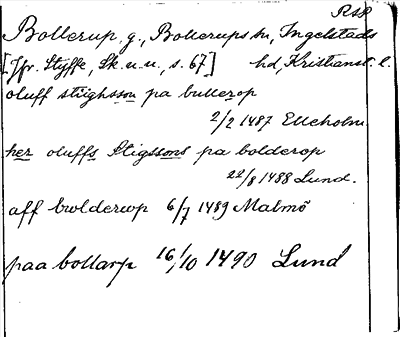 RAP
Bollerup, g., Bollerups sn, Ingelstads
[Jfr. Styffe, Sk. u. u., s. 67] hd, Kristianst. l.
oluff stiighsson pa bullerop
2/2 1487 Elleholm.
her oluffs Stigssons pa bolderop
22/8 1488 Lund.
aff bwlderwp 6/7 1489 Malmö
paa bollarp 16/10 1490 Lund